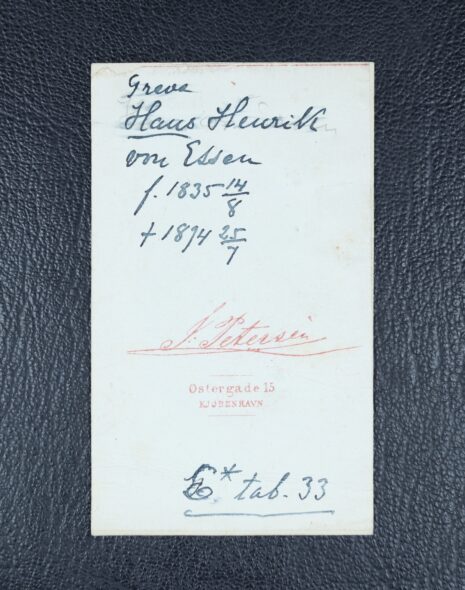 Greve
Hans Henrik
von Essen
f. 1835 14/8
+ 1894 25/7
J. Petersen
Ostergade 15
KJØBENHAVN
* tab. 33